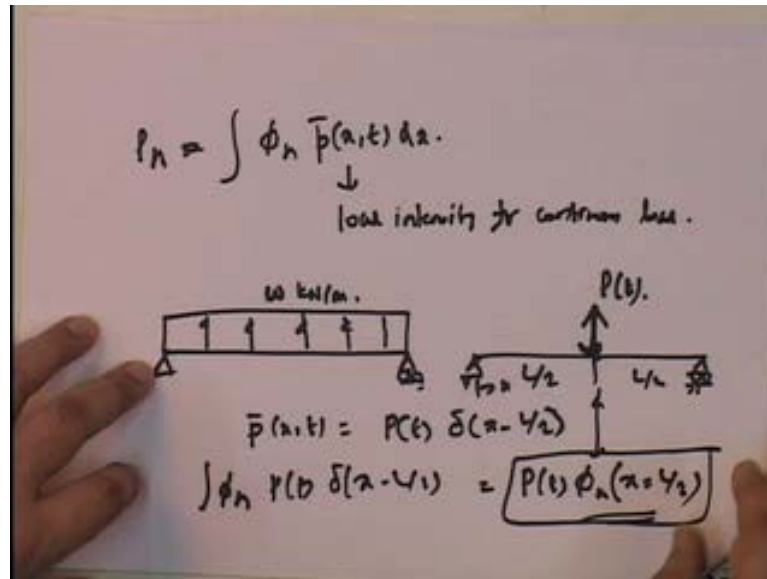 Pn = ∫ ϕn p̄(x,t) dx.
↓
load intensity for continuous load.
w kN/m.
P(t).
x L/2 L/2
p̄(x,t) = P(t) δ(x-L/2)
∫ϕn P(t) δ(x-L/2) = P(t) ϕn(x=L/2)